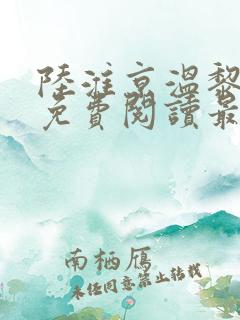 陸淮京溫黎
免費閱讀最
南栖雁
未经同意禁止转载